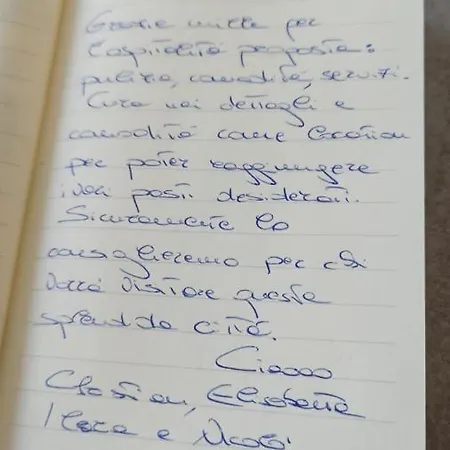 Grazie mille per
l'ospitalità proposta:
pulizia, comodità, servizi.
Cura nei dettagli e
comodità come location
per poter raggiungere
i vari posti desiderati.
Sicuramente lo
consiglieremo per chi
vorrà visitare questa
splendida città.
Ciaooo
Elisabetta
e Nicolò